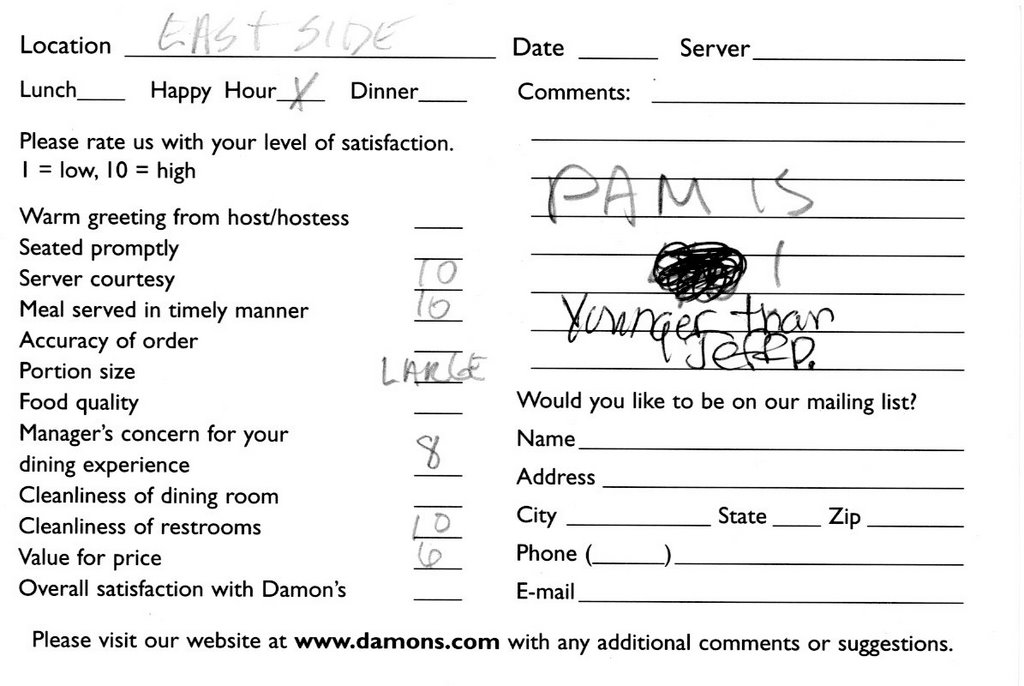 Location EAST SIDE Date ____ Server ____
Lunch____ Happy Hour X Dinner____ Comments:
Please rate us with your level of satisfaction.
1 = low, 10 = high
Warm greeting from host/hostess
Seated promptly
Server courtesy 10
Meal served in timely manner 10
Accuracy of order
Portion size LARGE
Food quality
Manager's concern for your
dining experience 8
Cleanliness of dining room
Cleanliness of restrooms 10
Value for price 6
Overall satisfaction with Damon's
PAM IS
1
Younger than
JeffD.
Would you like to be on our mailing list?
Name
Address
City ____ State ____ Zip ____
Phone (____)
E-mail
Please visit our website at www.damons.com with any additional comments or suggestions.